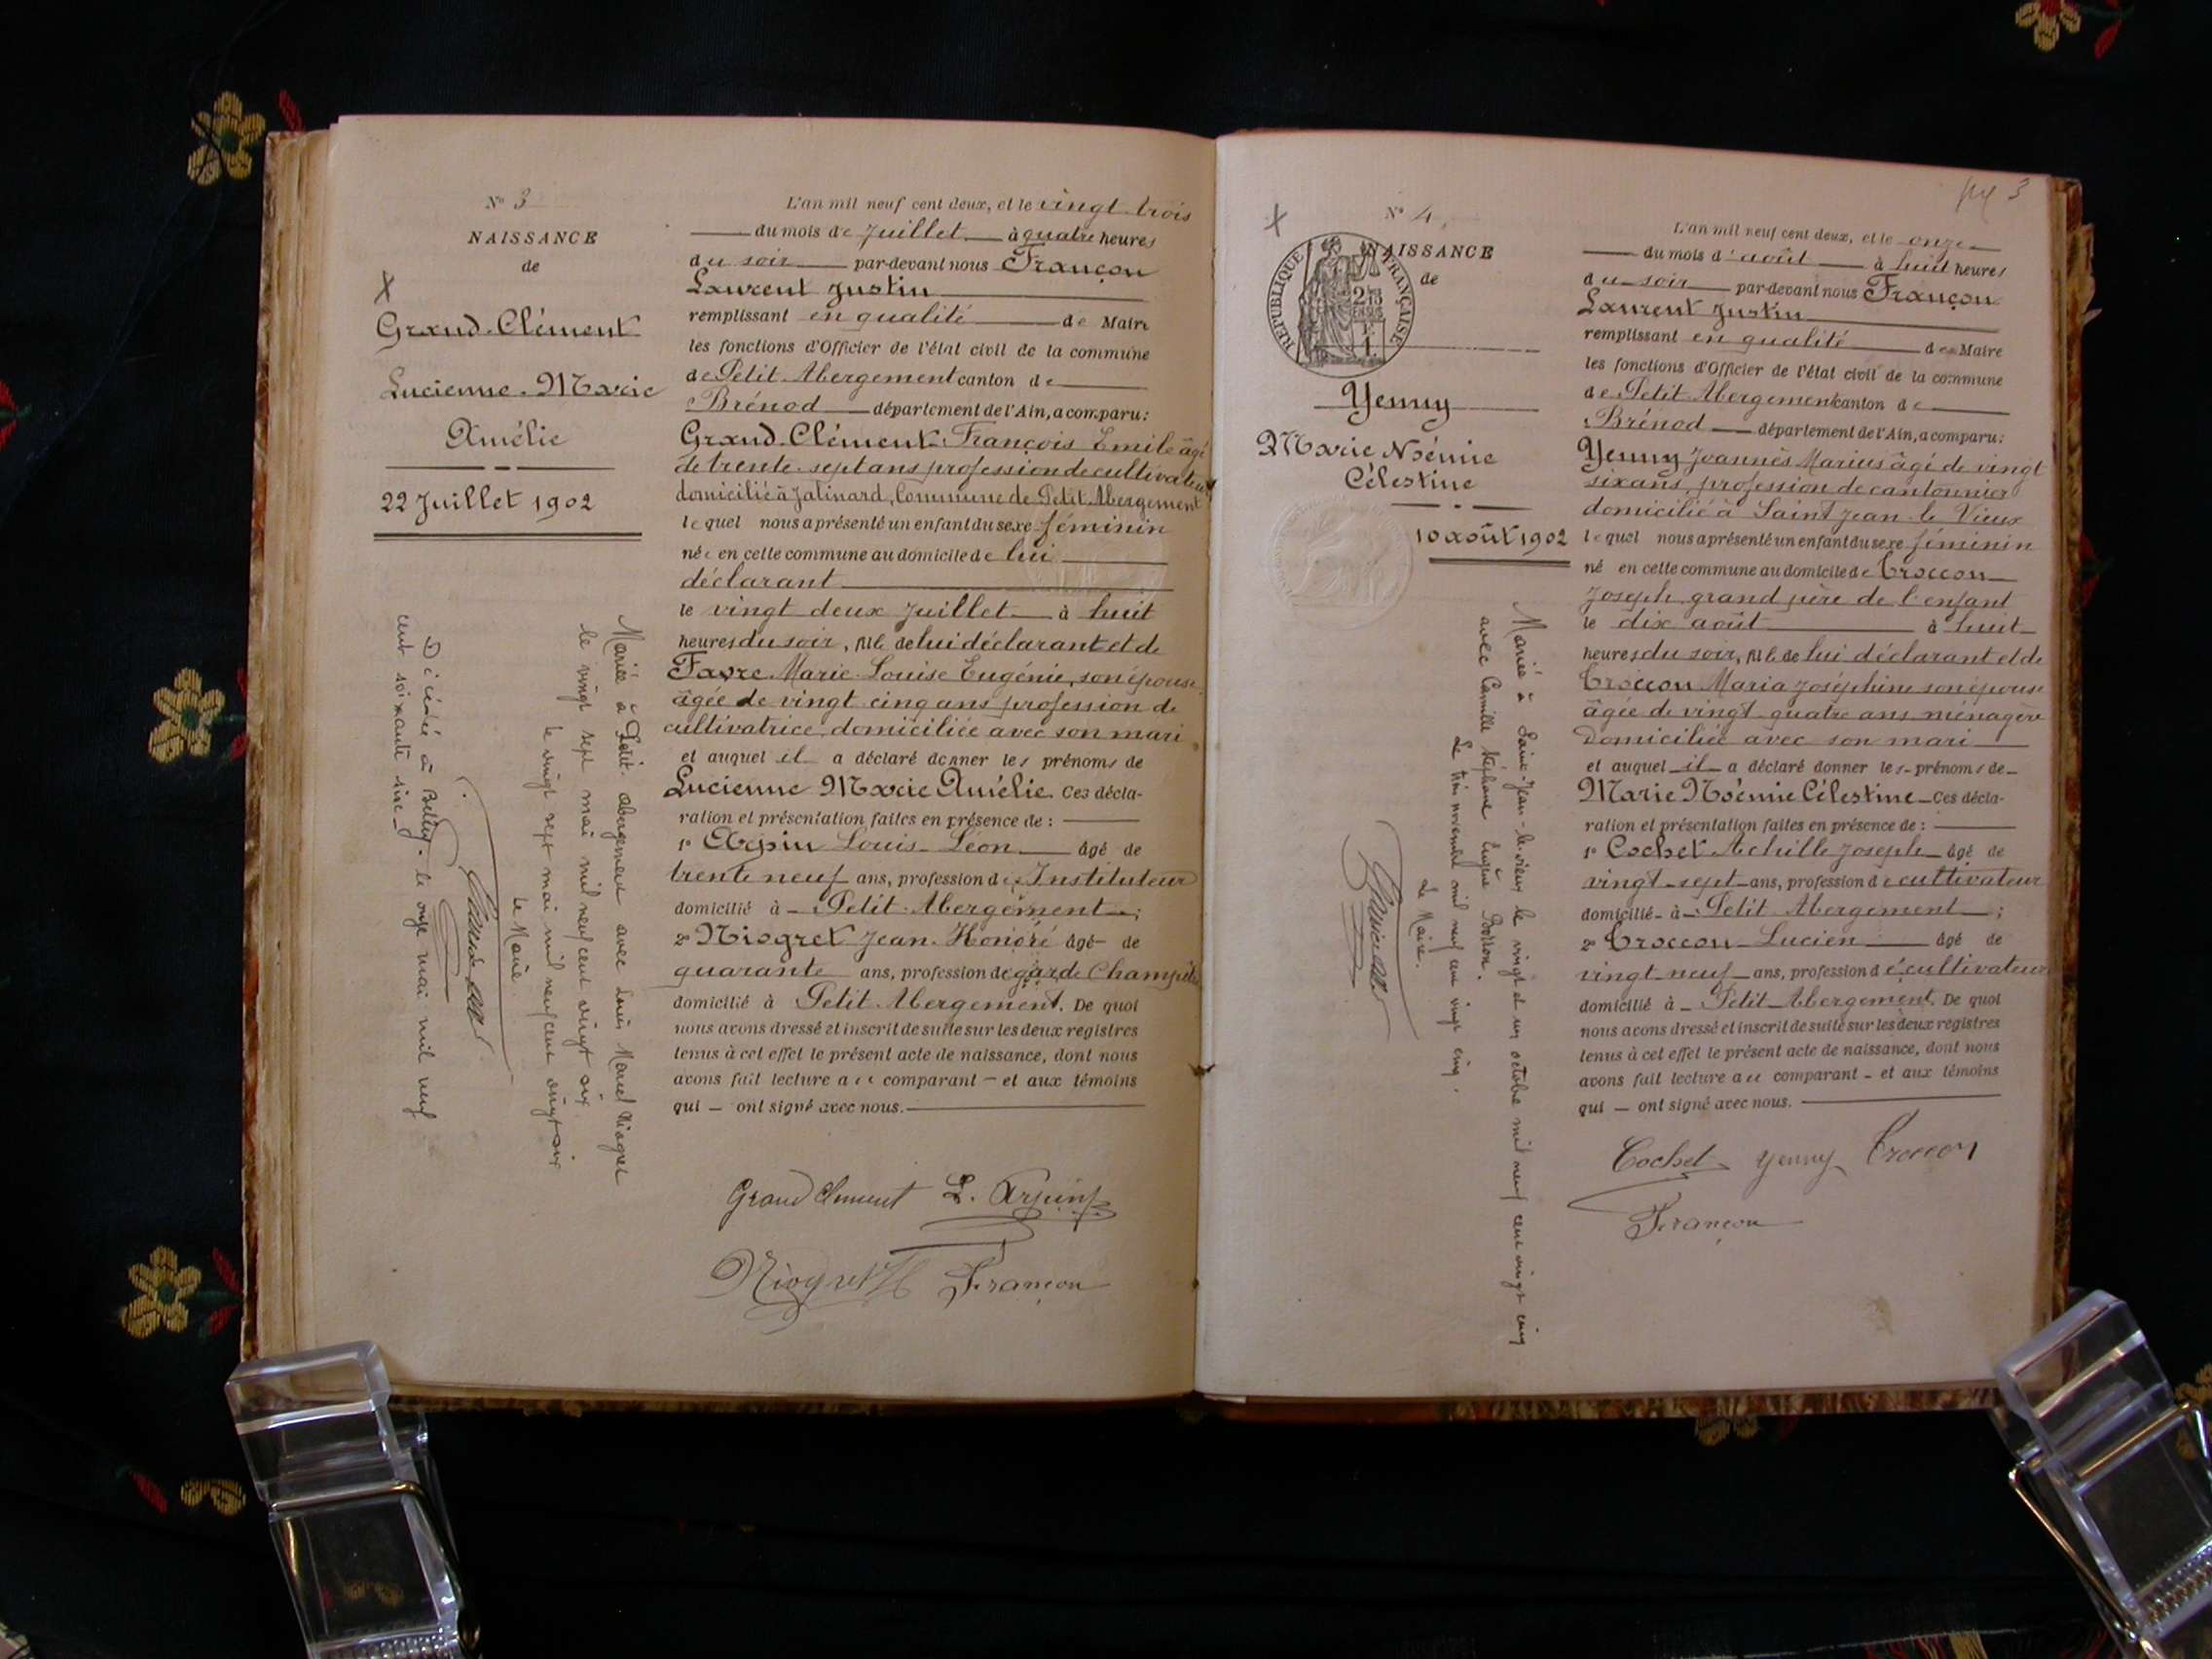 N° 3
NAISSANCE
de
Grand-Clément
Lucienne-Marie
Amélie
22 Juillet 1902
Mariée à Petit-Abergement avec Louis Marcel Niogret
le vingt sept mai mil neuf cent vingt six
le vingt sept mai mil neuf cent vingt six
Le Maire
Décédée à Belley le onze mai mil neuf
cent soixante six
L'an mil neuf cent deux, et le vingt trois
du mois de Juillet à quatre heures
du soir par-devant nous Françon
Laurent Justin
remplissant en qualité de Maire
les fonctions d'Officier de l'état civil de la commune
de Petit-Abergement canton de
Brénod département de l'Ain, a comparu:
Grand-Clément François Emile âgé
de trente-sept ans profession de cultivateur
domicilié à Jalinard, Commune de Petit Abergement
lequel nous a présenté un enfant du sexe féminin
née en cette commune au domicile de lui
déclarant
le vingt deux Juillet à huit
heures du soir, fille de lui déclarant et de
Favre Marie Louise Eugénie, son épouse
âgée de vingt cinq ans profession de
cultivatrice, domiciliée avec son mari
et auquel il a déclaré donner les prénoms de
Lucienne Marie Amélie. Ces décla-
ration et présentation faites en présence de :
1° Arpin Louis-Léon âgé de
trente neuf ans, profession d'Instituteur
domicilié à Petit-Abergement ;
2° Niogret Jean-Honoré âgé de
quarante ans, profession de garde Champêtre
domicilié à Petit-Abergement. De quoi
nous avons dressé et inscrit de suite sur les deux registres
tenus à cet effet le présent acte de naissance, dont nous
avons fait lecture au comparant et aux témoins
qui ont signé avec nous.
Grand Clément L. Arpin
Niogret H Françon
3
N° 4
NAISSANCE
de
REPUBLIQUE FRANÇAISE
Yenny
Marie Noémie
Célestine
10 août 1902
Mariée à Saint-Jean-le-vieux le vingt et un octobre mil neuf cent vingt cinq
avec Camille Stéphane Eugène
Le trois novembre mil neuf cent vingt cinq.
Le Maire.
L'an mil neuf cent deux, et le onze
du mois d'août à huit heures
du soir par-devant nous Françon
Laurent Justin
remplissant en qualité de Maire
les fonctions d'Officier de l'état civil de la commune
de Petit Abergement canton de
Brénod département de l'Ain, a comparu:
Yenny Joannès Marius âgé de vingt
six ans, profession de cantonnier
domicilié à Saint Jean-le Vieux
lequel nous a présenté un enfant du sexe féminin
né en cette commune au domicile de Troccon
Joseph, grand père de l'enfant
le dix août à huit
heures du soir, fille de lui déclarant et de
Troccon Maria Joséphine son épouse
âgée de vingt-quatre ans ménagère
domiciliée avec son mari
et auquel il a déclaré donner les prénoms de
Marie Noémie Célestine Ces décla-
ration et présentation faites en présence de :
1° Cochet Achille Joseph âgé de
vingt-sept ans, profession de cultivateur
domicilié à Petit-Abergement ;
2° Troccon Lucien âgé de
vingt-neuf ans, profession de cultivateur
domicilié à Petit-Abergement. De quoi
nous avons dressé et inscrit de suite sur les deux registres
tenus à cet effet le présent acte de naissance, dont nous
avons fait lecture au comparant et aux témoins
qui ont signé avec nous.
Cochet Yenny Troccon
Françon